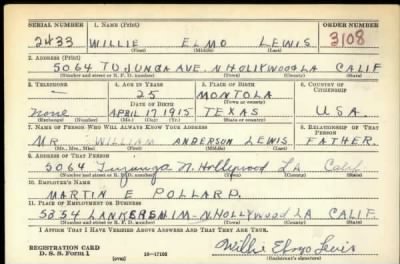 SERIAL NUMBER 1. NAME (Print) ORDER NUMBER
2433 WILLIE ELMO LEWIS 3108
(First) (Middle) (Last)
2. ADDRESS (Print)
5064 TUJUNGA AVE. N. HOLLYWOOD LA CALIF
(Number and street or R. F. D. number) (Town) (County) (State)
3. TELEPHONE 4. AGE IN YEARS 5. PLACE OF BIRTH 6. COUNTRY OF CITIZENSHIP
— 25 MONTOLA
DATE OF BIRTH (Town or county)
none APRIL 17 1915 TEXAS U.S.A.
(Exchange) (Number) (Mo.) (Day) (Yr.) (State or country)
7. NAME OF PERSON WHO WILL ALWAYS KNOW YOUR ADDRESS 8. RELATIONSHIP OF THAT PERSON
MR WILLIAM ANDERSON LEWIS FATHER.
(Mr., Mrs., Miss) (First) (Middle) (Last)
9. ADDRESS OF THAT PERSON
5064 Tujunga N. Hollywood LA Calif
(Number and street or R. F. D. number) (Town) (County) (State)
10. EMPLOYER'S NAME
MARTIN E POLLARD.
11. PLACE OF EMPLOYMENT OR BUSINESS
5354 LANKERSHIM - N. HOLLYWOOD LA CALIF.
(Number and street or R. F. D. number) (Town) (County) (State)
I AFFIRM THAT I HAVE VERIFIED ABOVE ANSWERS AND THAT THEY ARE TRUE.
REGISTRATION CARD
D. S. S. Form 1 (over) Willie Elmo Lewis
(Registrant's signature)